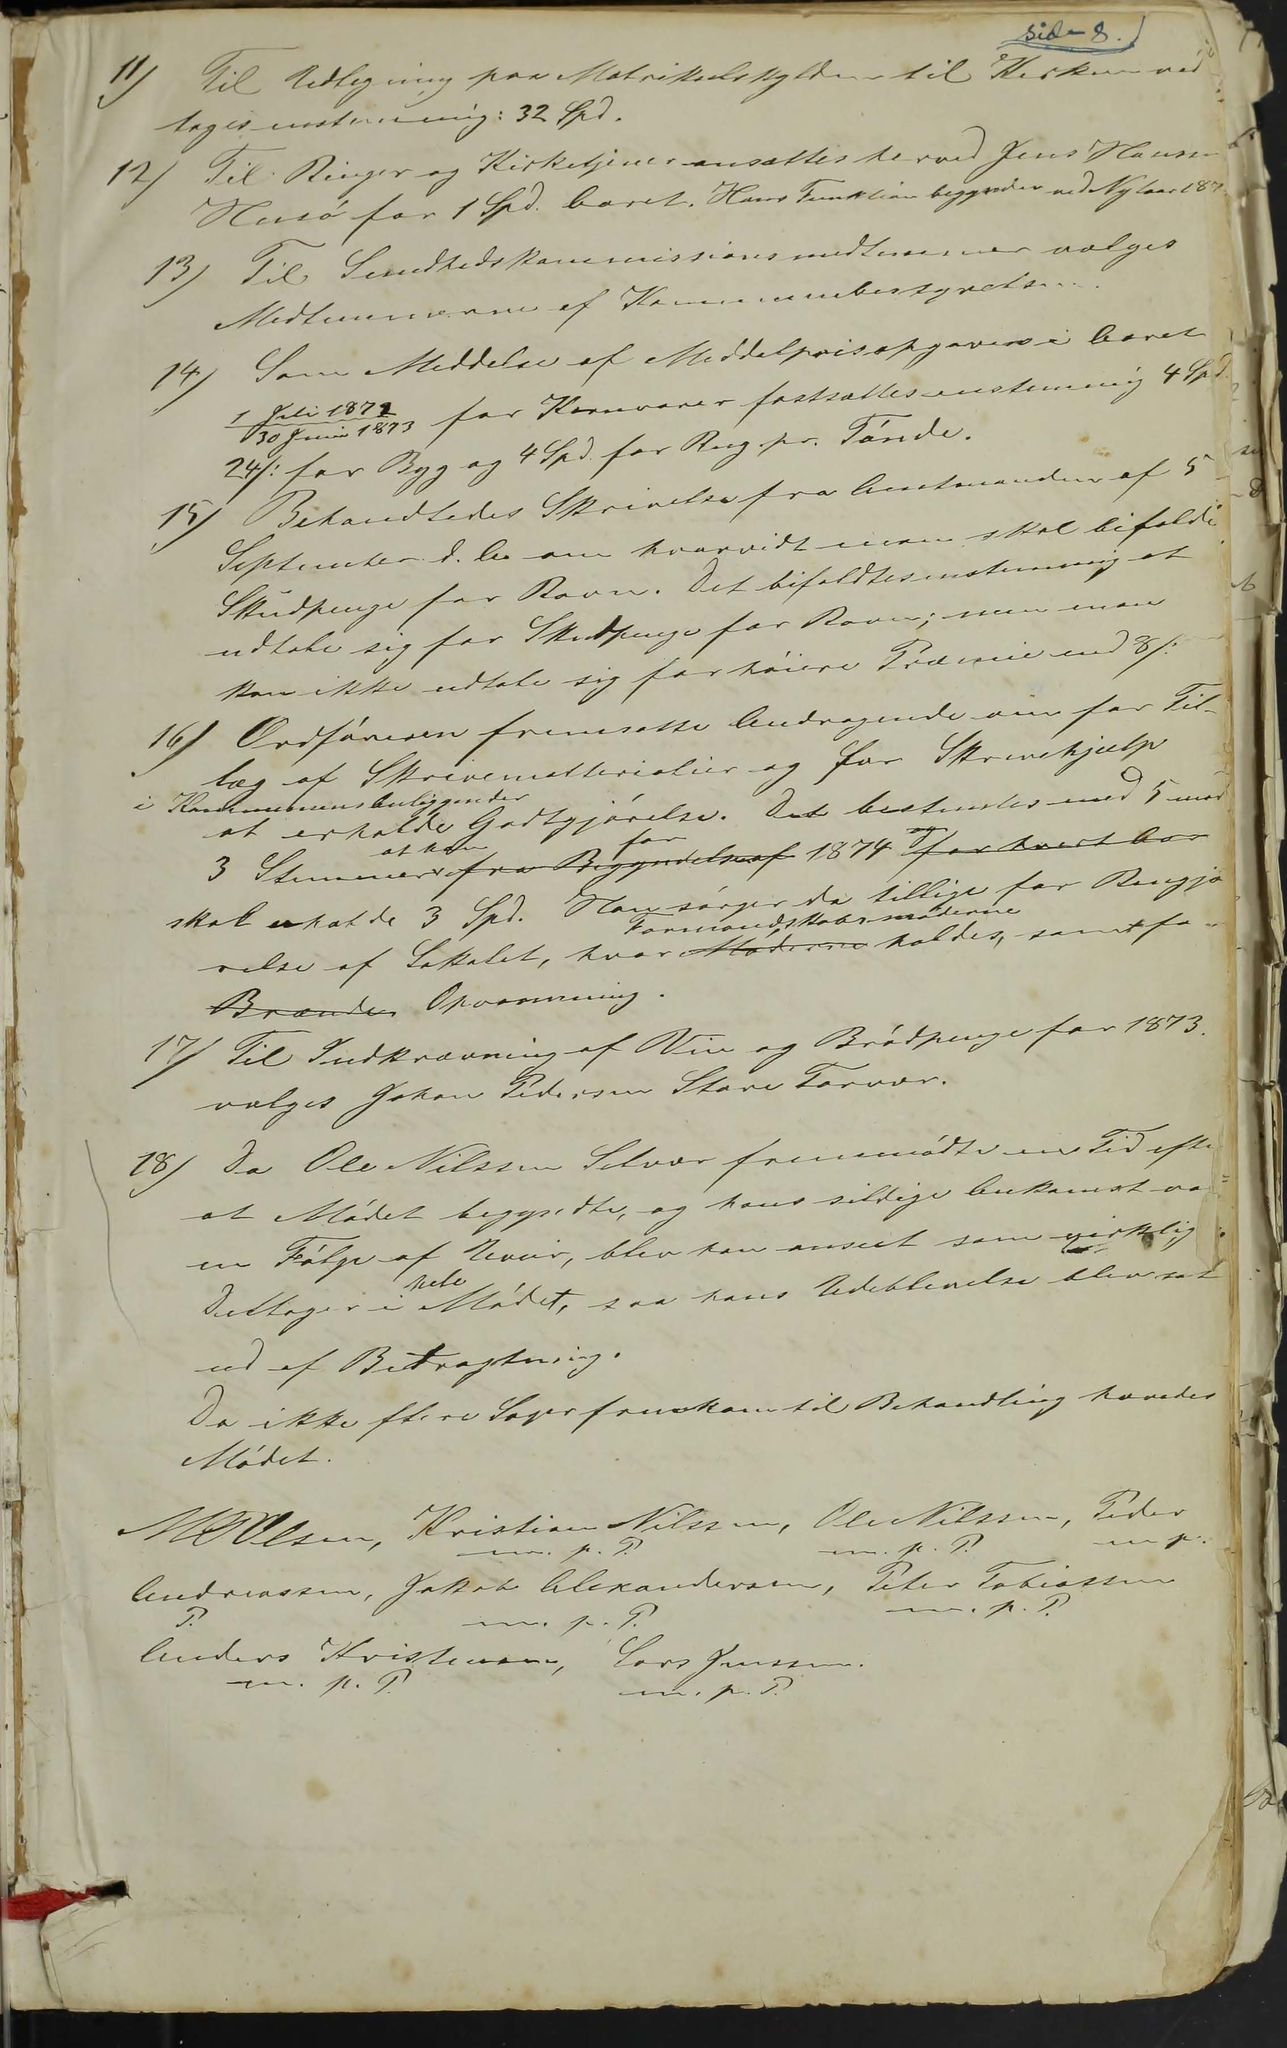 side 8.
11) Til Udligning paa Matrikulskylden til Kirken ved
toges enstemmig: 32 Spd.
12) Til Ringer og Kirketjener ansættes herved Jens Hansen
Husö for 1 Spd. Aaret. Hans Funktion begynder ved Nytaar 187
13) Til Sundhedskommissionsmedlemmer valges
Medlemmerne af Kommunebestyrelsen.
14) Som Meddelse af Middelprisopgaven i Aaret
1 Juli 1872
30 Juni 1873 for Kornvarer fastsættes enstemmig 4 Spd.
24 /: for Byg og 4 Spd. for Rug pr. Tønde.
15) Behandledes Skrivelse fra Amtmanden af 5
September d. A. om hvorvidt man skal bifalde
Skudpenge for Ravn. Det bifaldtes enstemmig at
udtale sig for Skudpenge for Ravn; men man
kan ikke udtale sig for høiere Præmie end 8 /:
16) Ordføreren fremsatte Andragende om for Til-
læg af Skrivematerialier og for Skrivehjælp
i Kommunens Anliggender
at erholde Godtgjørelse. Det bestemtes med 5 mod
3 Stemmer at han fra Begyndelsen af for 1874 og for hvert Aar
skal erholde 3 Spd. Han sørger da tillige for Rengjø
relse af Lokalet, hvor Møderne Formandskabsmøderne holdes, samt for
Brænde Opvarmning.
17) Til Indkrævning af Vin og Brødpenge for 1873.
valges Johan Pedersen Store Torvær.
18) Da Ole Nilssen Selvær fremmødte en Tid efter
at Mødet begyndte, og hans sildige Ankomst va
en Følge af Uveir, blev han anseet som virkelig
Deltager i hele Mødet, saa hans Udeblivelse blev sat
ud af Betragtning.
Da ikke flere Sager fremkom til Behandling hævedes
Mødet.
Olsen, Kristian Nilssen, Ole Nilssen, Peder
m. p. P. m. p. P. m p.
Andreassen, Jakob Alexandersen, Peter Tobiassen
P. m. p. P. m. p. P.
Anders Kristensen, Lars Jenssen.
m. p. P. m. p. P.